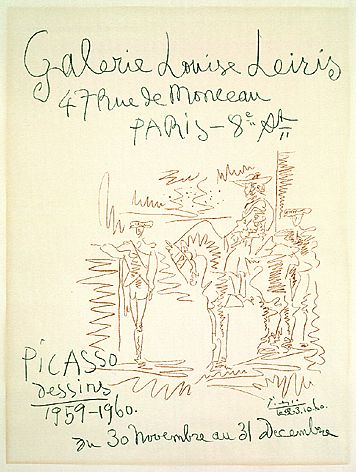 Galerie Louise Leiris
47 Rue de Monceau
PARIS - 8e Art
PICASSO
dessins
1959-1960.
Picasso
du 30 Novembre au 31 Décembre